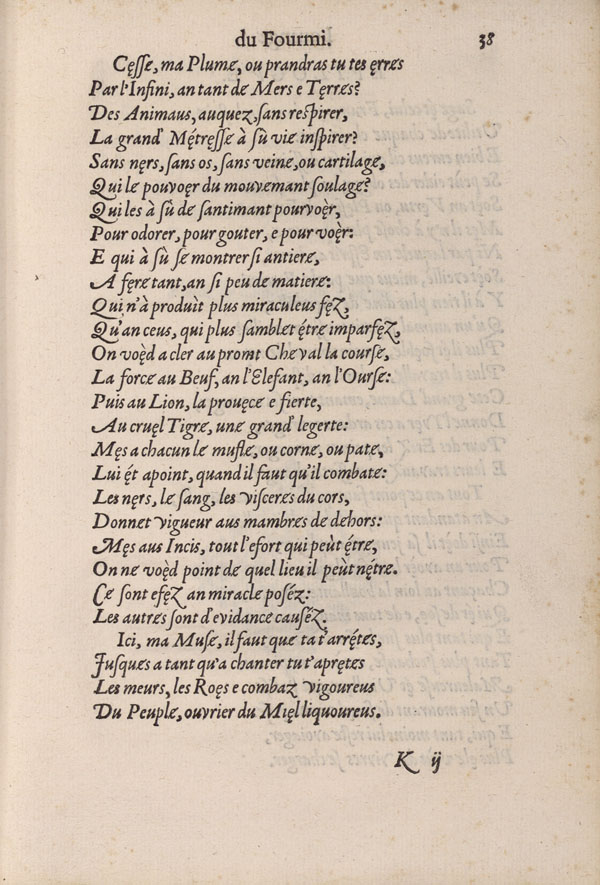 du Fourmi. 38
Cęſſe, ma Plume, ou prandras tu tes ęrres
Par l'Infini, an tant de Mers e Tęrres?
Des Animaus, auquez, sans reſpirer,
La grand' Métręſſe à sù vie inſpirer?
Sans nęrs, sans os, sans veine, ou cartilage,
Qui le pouvoęr du mouvemant soulage?
Qui les à sù de santimant pourvoę̀r,
Pour odorer, pour gouter, e pour voę̀r:
E qui à sù se montrer si antiere,
A fęre tant, an si peu de matiere:
Qui n'à produìt plus miraculeus fęz,
Qu'an ceus, qui plus samblet ę́tre imparfęz,
On voę̀d a cler au promt Cheval la courſe,
La force au Beuf, an l'Elefant, an l'Ourſe:
Puis au Lion, la prouęce e fierte,
Au cruęl Tigre, une grand' legerte:
Męs a chacun le mufle, ou corne, ou pate,
Lui ę́t apoint, quand il faut qu'il combate:
Les nęrs, le sang, les visceres du cors,
Donnet vigueur aus mambres de dehors:
Męs aus Incis, tout l'efort qui peùt ę́tre,
On ne voę̀d point de quel lieu il peùt nętre.
Ce sont efęz an miracle poséz:
Les autres sont d'evidance causéz.
Ici, ma Muſe, il faut que ta t'arrę́tes,
Juſques a tant qu'a chanter tu t'aprętes
Les meurs, les Roęs e combaz vigoureus
Du Peuple, ouvrier du Mięl liquoureus.
K ij